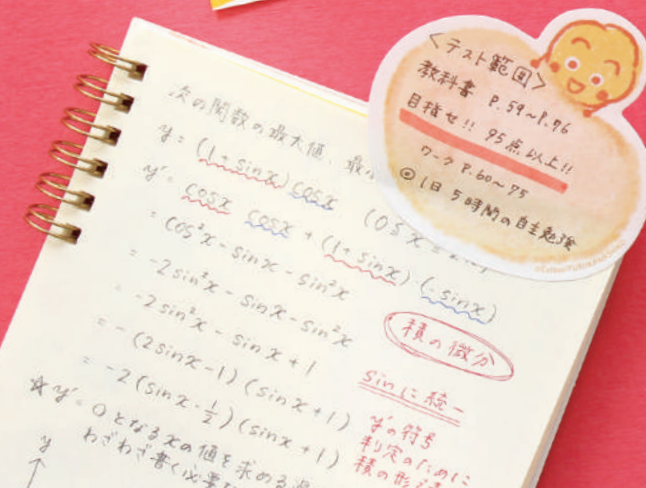 <テスト範囲>
教科書 P.59~P.76
目指せ!! 95点以上!!
ワーク P.60~75
◎1日5時間の自主勉強
次の関数の最大値、最
y = (1+sinx)cosx (0≤x≤
y' = cosx cosx + (1+sinx)・(-sinx)
= cos²x - sinx - sin²x
= -2sin²x - sinx - sin²x
= -2sin²x - sinx + 1
= -(2sinx-1)(sinx+1)
= -2(sinx-1/2)(sinx+1)
積の微分
sinに統一
y'の符号
判定のために
積の形
☆y' = 0となるxの値を求める
わざわざ書く必要
y